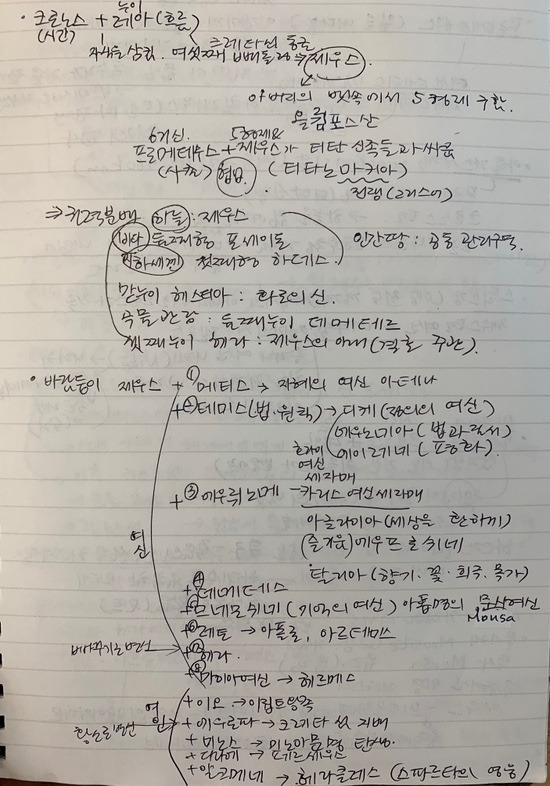 누이
· 크로노스 + 레아(흐름)
(시간)
자식을 삼킴. 여섯째 빼돌림 ⇒ 제우스.
크레타섬 동굴
아버리의 뱃속에서 5형제 구함.
올림포스산
6거신. 5형제와
프로메테우스 + 제우스가 티탄 신족들과 싸움
(사촌) 협력 (티타노마키아)
전쟁 (그리스어)
⇒ 권력분배 하늘 : 제우스
바다 둘째형 포세이돈 인간땅 : 공동 관리구역
지하세계 첫째형 하데스.
맏누이 헤스티아 : 화로의 신.
곡물관장 : 둘째누이 데메테르
셋째누이 헤라 : 제우스의 아내 (결혼 주관)
· 바람둥이 제우스 + ① 메티스 → 지혜의 여신 아테나
+ ② 테미스 (법·원칙) → 디케 (정의의 여신)
에우노미아 (법과 질서)
에이레네 (평화)
호라이
여신
세자매
+ ③ 에우뤼노메 → 카리스 여신 세자매
아글라이아 (세상을 환하게)
(즐거움) 에우프로쉬네
탈리아 (향기·꽃·희극·목가)
여신
④ + 데메테르
⑤ + 므네모쉬네 (기억의 여신) 아홉명의 무사여신
Mousa
⑥ + 레토 → 아폴론, 아르테미스
⑦ + 헤라.
⑧ + 마이아여신 → 헤르메스
여인
+ 이오 → 이집트왕족
+ 에우로파 → 크레타 섬 지배
+ 미노스 → 미노아문명 탄생.
+ 다나에 → 페르세우스
+ 알크메네 → 헤라클레스 (스파르타의 영웅)